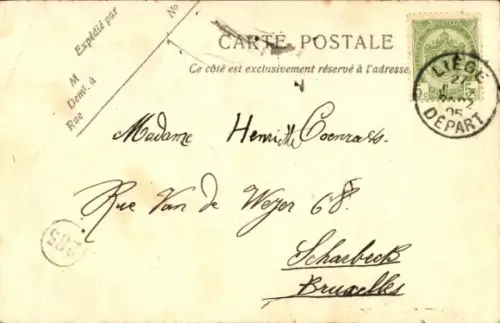 Expédié par
No
M
Demt. à
Rue
CARTE POSTALE
Ce côté est exclusivement réservé à l'adresse.
LIÉGE
27
05
DÉPART
Madame Henriette Coenrads.
Rue Van de Weyer 68.
Scharbeck
Bruxelles
285